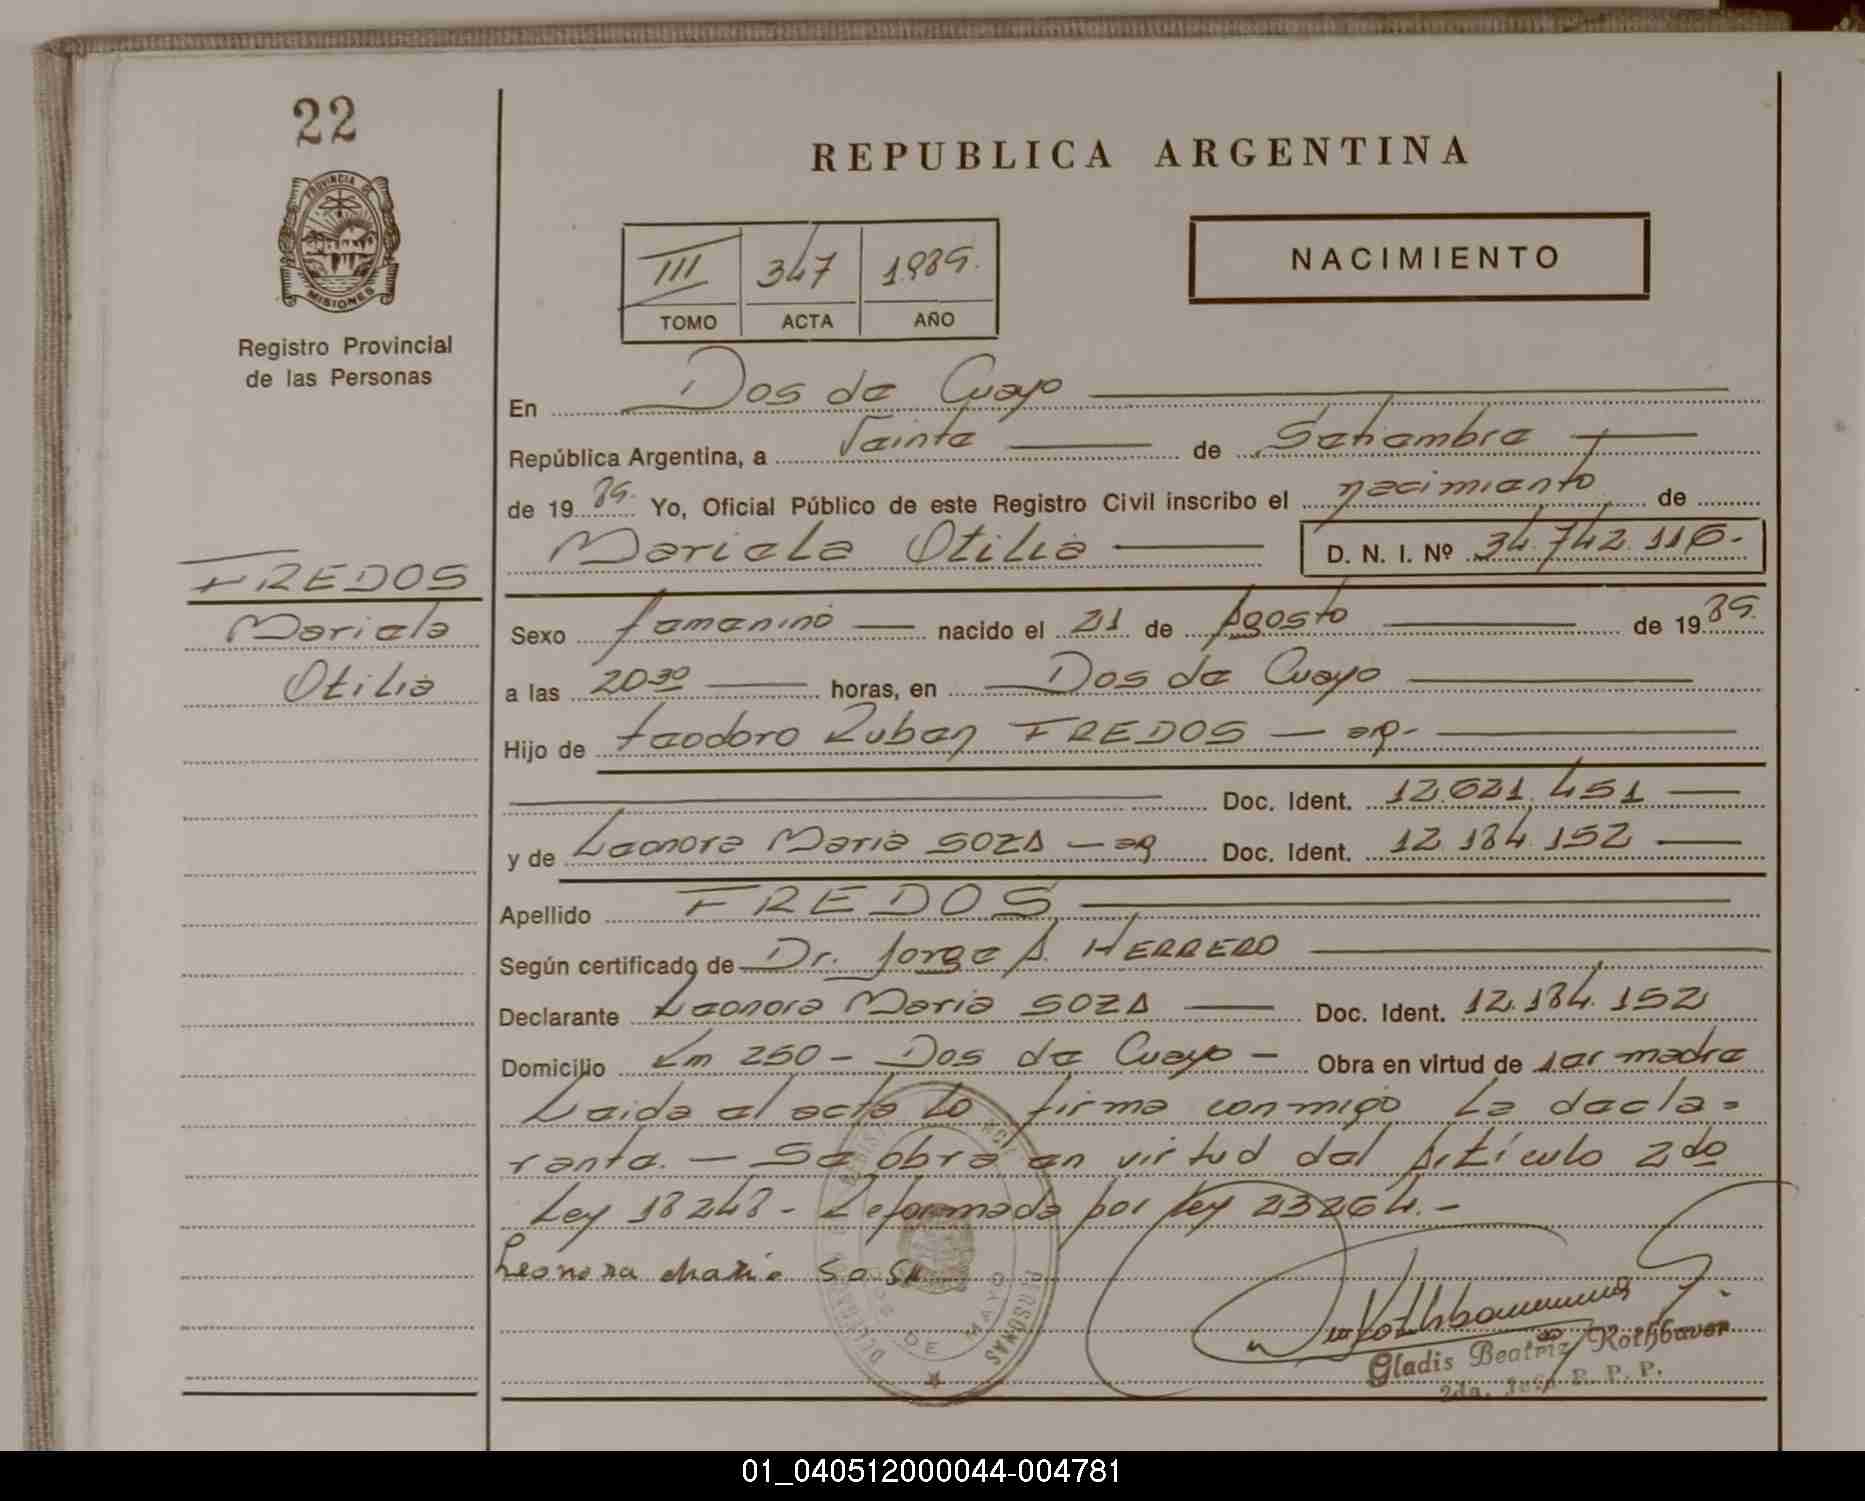 22
PROVINCIA DE
MISIONES
Registro Provincial
de las Personas
REPUBLICA ARGENTINA
III 347 1.989.
TOMO ACTA AÑO
NACIMIENTO
En Dos de Mayo
República Argentina, a Veinte de Setiembre
de 19 89. Yo, Oficial Público de este Registro Civil inscribo el nacimiento de
Mariela Otilia D. N. I. Nº 34.742.116.-
FREDOS
Mariela
Otilia
Sexo femenino nacido el 21 de Agosto de 19 89.
a las 20 30 horas, en Dos de Mayo
Hijo de teodoro Ruben FREDOS — ar.-
Doc. Ident. 12.621.451
y de Leonora Maria SOZA — ar Doc. Ident. 12.184.152
Apellido FREDOS
Según certificado de Dr. Jorge A. HERRERO
Declarante Leonora Maria SOZA Doc. Ident. 12.184.152
Domicilio Km 250 - Dos de Mayo - Obra en virtud de ser madre
Leida el acta lo firma conmigo la decla=
rante. — Se obra en virtud del Artículo 2do
Ley 18248 - Reformada por ley 23264.-
Leonora Maria Sosa
DOS DE MAYO
PERSONAS
Gladis Beatriz Rothbaver
2da. Jefe R. P. P.
01_040512000044-004781